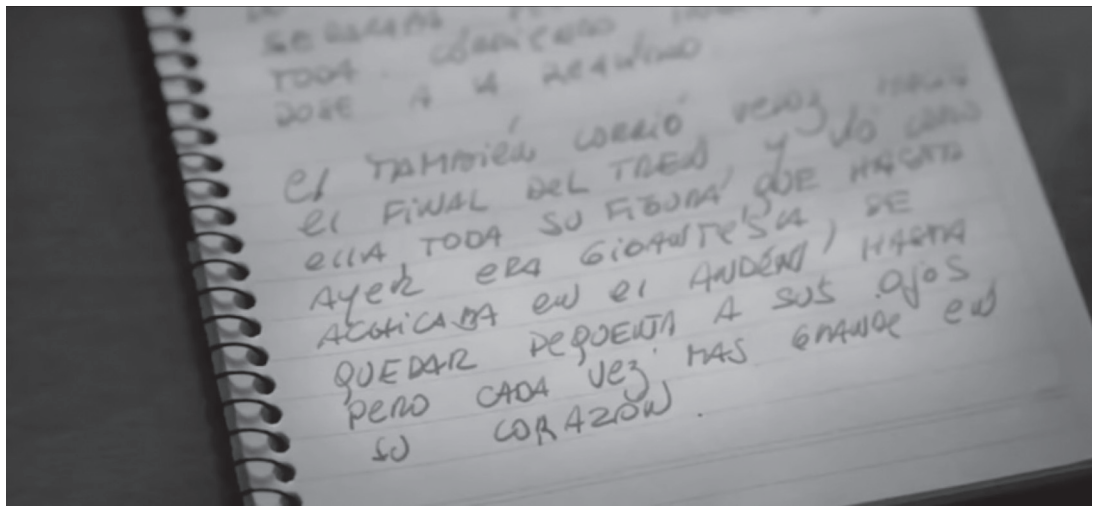 TODA. CORRIENDO
DOSE A LA
el TAMBIÉN CORRIÓ veloz
el FINAL DEL TREN, y vio como
ella, TODA SU FIGURA, QUE HASTA
AYER ERA GIGANTESCA, SE
ACHICABA en el ANDÉN, HASTA
QUEDAR PEQUEÑA A SUS OjOS
pero CADA Vez MAS GRANDE en
SU CORAZÓN.